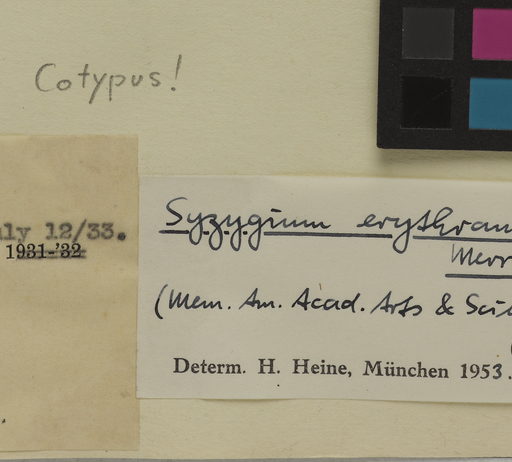 Cotypus!
12/33.
1931-'32
Syzygium erythran
Merr
(Mem. Am. Acad. Arts & Sci
Determ. H. Heine, München 1953.